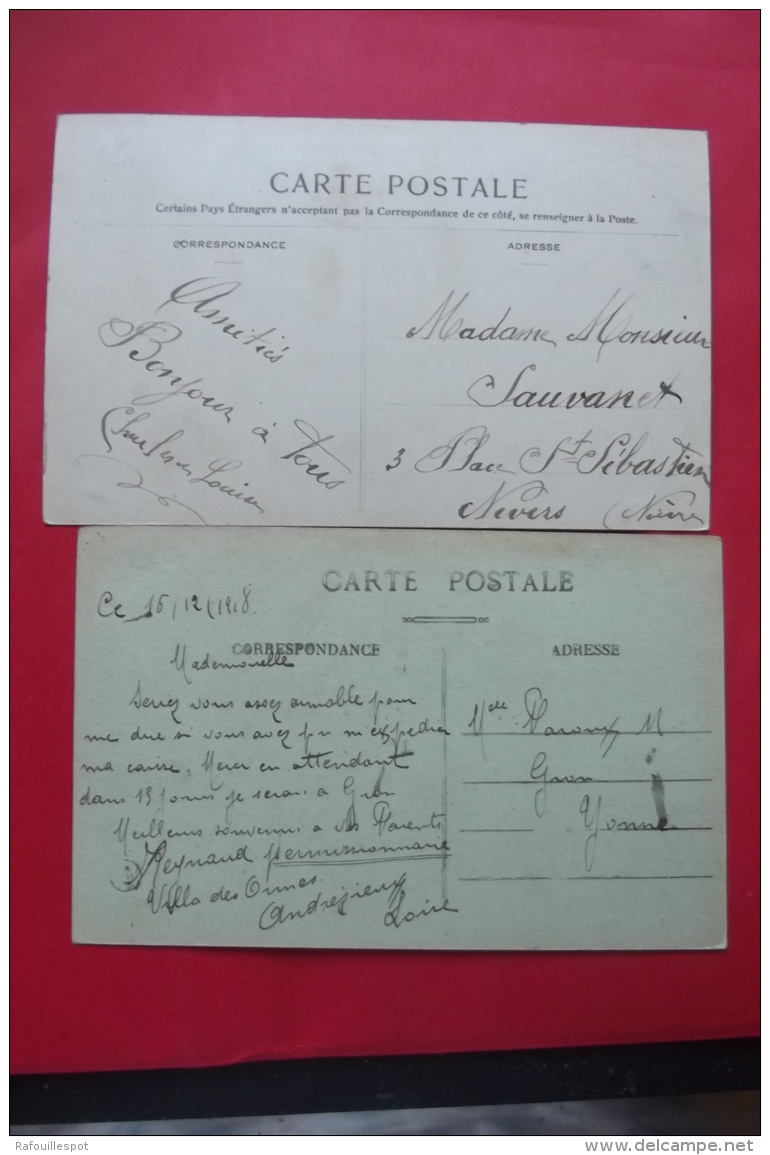 CARTE POSTALE
Certains Pays Étrangers n'acceptant pas la Correspondance de ce côté, se renseigner à la Poste.
CORRESPONDANCE
Amitiés
Bonjour à tous
Charles et Louise
ADRESSE
Madame Monsieur
Sauvanet
3 Place St Sébastien
Nevers (Nièvre
CARTE POSTALE
Ce 16/12/1918.
CORRESPONDANCE
Mademoiselle
Seriez vous assez aimable pour
me dire si vous avez pu m'expedier
ma caisse. Merci en attendant
dans 15 jours je serai a Gron
Meilleurs souvenirs a vos Parents
Reynaud permissionnaire
Villa des Ormes
Andrezieux
Loire
ADRESSE
Melle M.
Gron
Yonne
Rafouillespot
www.delcampe.net